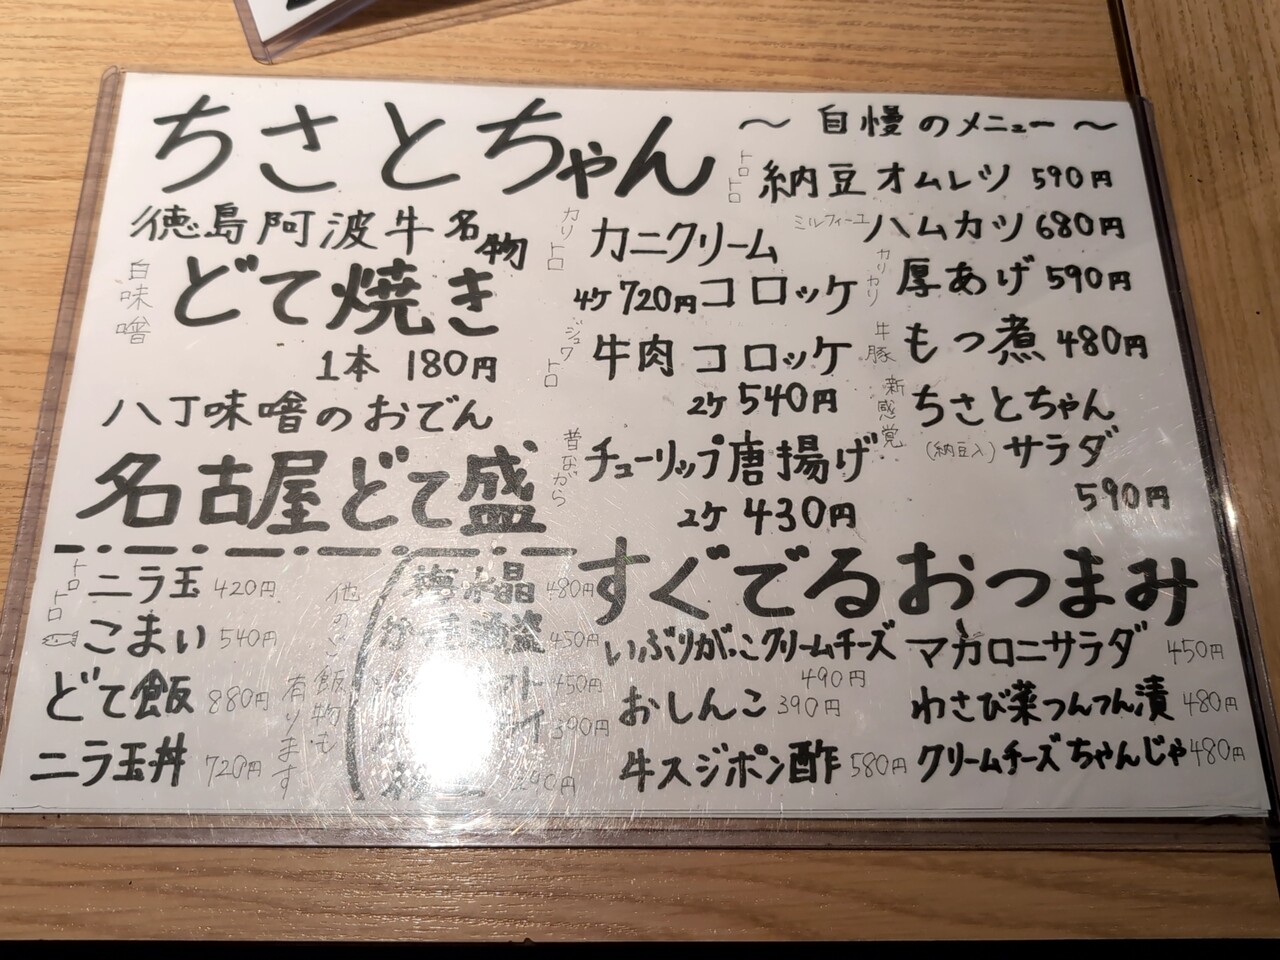 ちさとちゃん
～ 自慢のメニュー ～
徳島阿波牛名物
白味噌
どて焼き
1本 180円
八丁味噌のおでん
名古屋どて盛
カリトロ
カニクリーム
4ケ720円コロッケ
ジュワトロ
牛肉コロッケ
2ケ 540円
昔ながら
チューリップ唐揚げ
2ケ 430円
トロトロ
納豆オムレツ 590円
ミルフィーユ ハムカツ 680円
カリカリ
厚あげ 590円
牛豚
もつ煮 480円
新感覚
ちさとちゃん
(納豆入) サラダ
590円
トロトロ
ニラ玉 420円
こまい 540円
どて飯 880円
ニラ玉丼 720円
他のご飯物も
有ります
480円
450円
450円
390円
すぐでるおつまみ
いぶりがっこクリームチーズ
490円
おしんこ 390円
牛スジポン酢 580円
マカロニサラダ 450円
わさび菜つんつん漬 480円
クリームチーズちゃんじゃ 480円